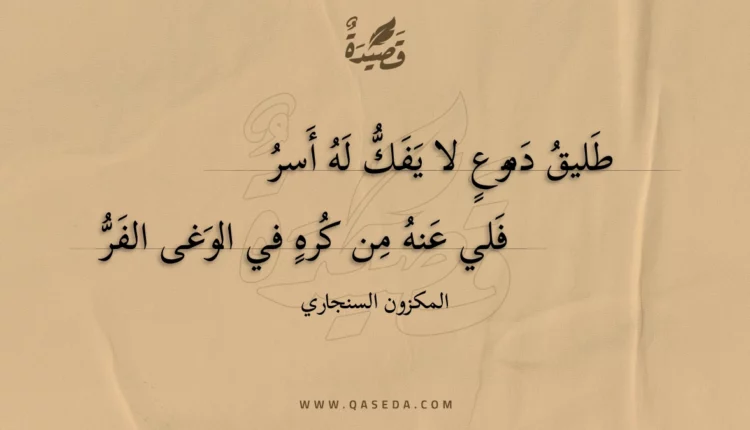 قَصِيْدَةٌ
طَليقُ دَموعٍ لا يَفَكُّ لَهُ أَسرُ
فَلي عَنهُ مِن كُرهٍ في الوَغى الفَرُّ
المكزون السنجاري
WWW.QASEDA.COM